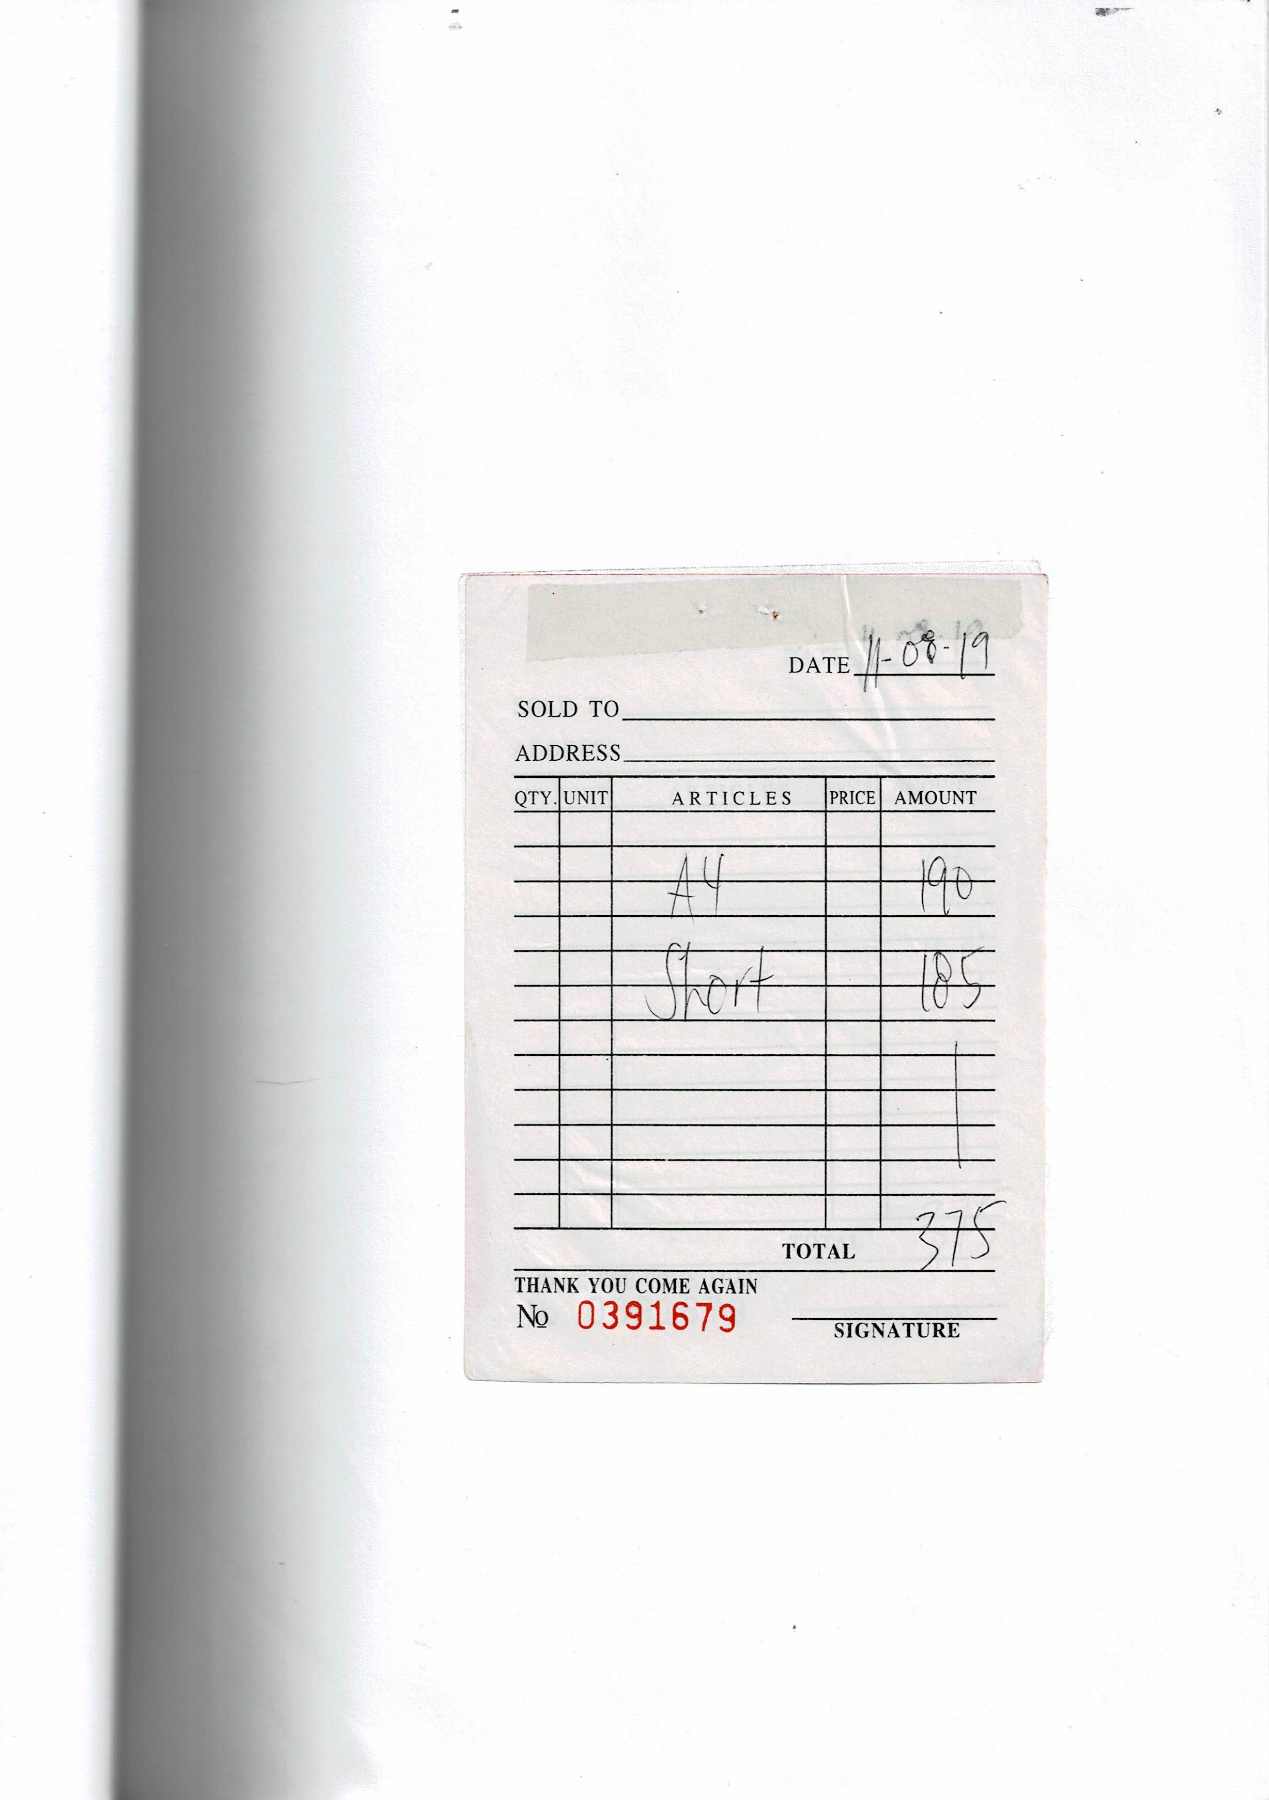 DATE 11-08-19
SOLD TO
ADDRESS
QTY. UNIT ARTICLES PRICE AMOUNT
A4 190
Short 185
TOTAL 375
THANK YOU COME AGAIN
No 0391679
SIGNATURE